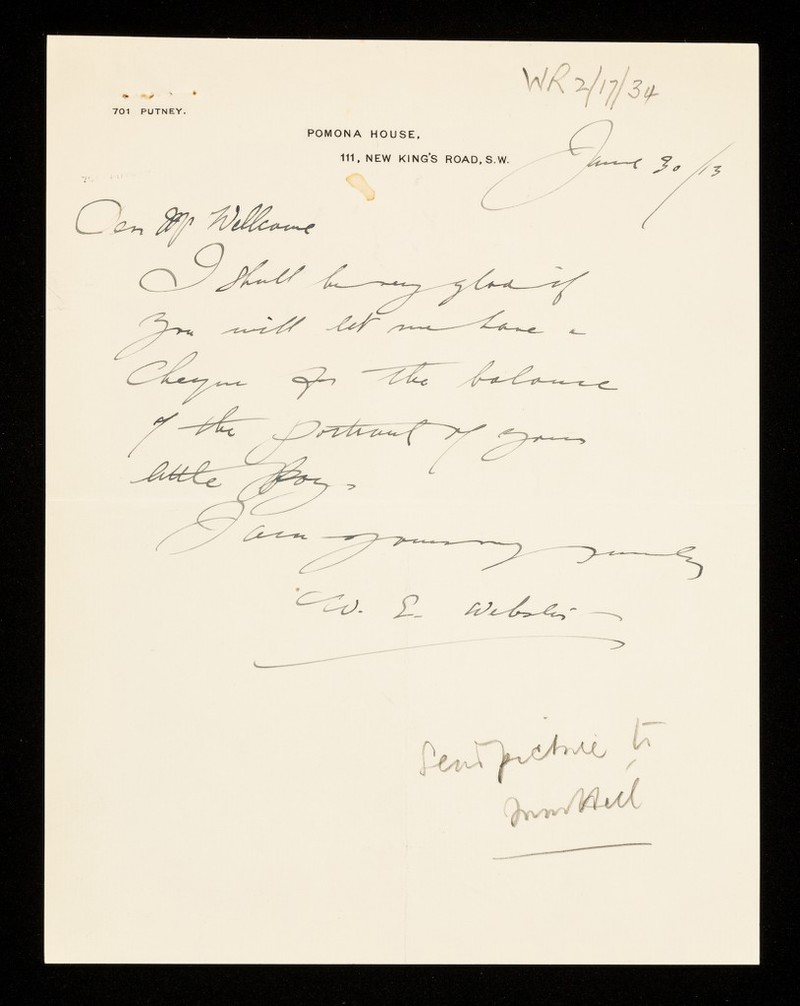 WR 2/17/34
701 PUTNEY.
POMONA HOUSE,
111, NEW KING'S ROAD, S.W.
June 30/13
Dear Mr Wellcome
I shall be very glad if
you will let me have a
cheque for the balance
of the portrait of your
little boy.
I am yours very sincerely
W. E. Webster
Send picture to